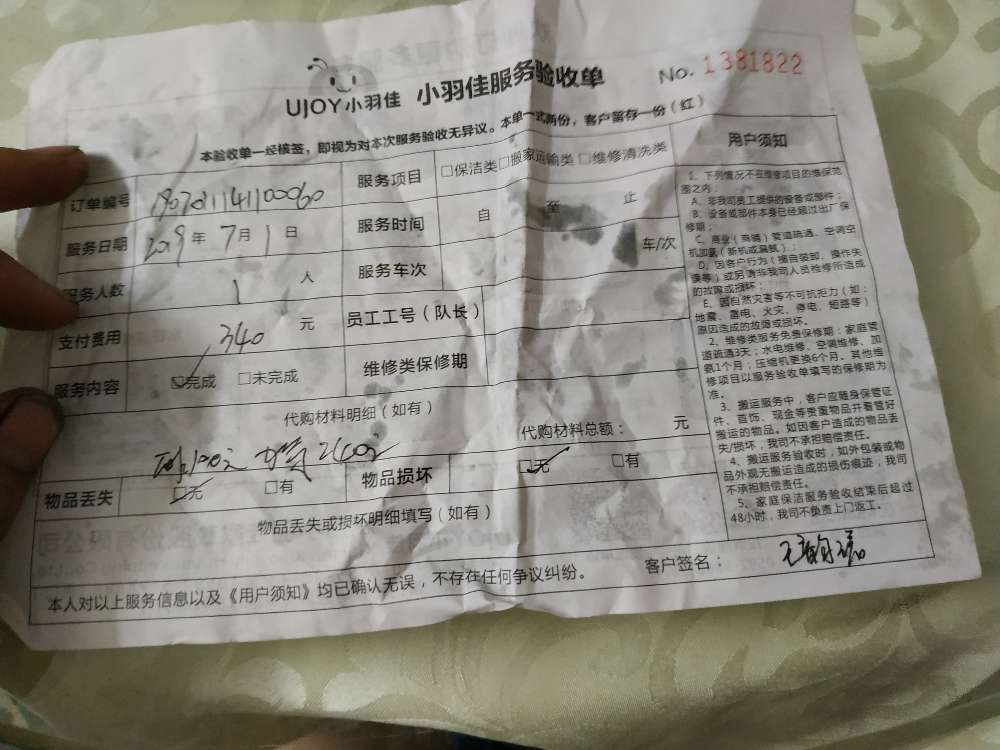 UJOY小羽佳 小羽佳服务验收单 No. 1381822
本验收单一经核签，即视为对本次服务验收无异议。本单一式两份，客户留存一份（红）
订单编号 服务项目 □保洁类□搬家运输类□维修清洗类
服务日期 2019年7月1日 服务时间 自 至 止
服务人数 1 人 服务车次 车/次
支付费用 340 元 员工工号（队长）
服务内容 ☑完成 □未完成 维修类保修期
代购材料明细（如有）
代购材料总额： 元
物品丢失 ☑无 □有 物品损坏 ☑无 □有
物品丢失或损坏明细填写（如有）
客户签名：
本人对以上服务信息以及《用户须知》均已确认无误，不存在任何争议纠纷。
用户须知
1、下列情况不在维修项目的维保范
围之内：
A、非我司员工提供的设备或部件；
B、设备或部件本身已经超过出厂保
修期；
C、商业（商铺）管道疏通、空调空
机加氟（新机或漏氟）；
D、因客户行为（擅自装卸、操作失
误等）或另请非我司人员检修所造成
的故障或损坏；
E、因自然灾害等不可抗拒力（如：
地震、雷电、火灾、停电、短路等）
原因造成的故障或损坏。
2、维修类服务免费保修期：家庭管
道疏通3天；水电维修、空调维修、加
氨1个月；压缩机更换6个月。其他维
修项目以服务验收单填写的保修期为
准。
3、搬运服务中，客户应随身保管证
件、首饰、现金等贵重物品并看管好
搬运的物品。如因客户造成的物品丢
失/损坏，我司不承担赔偿责任。
4、搬运服务验收时，如外包装或物
品外观无搬运造成的损伤痕迹，我司
不承担赔偿责任。
5、家庭保洁服务验收结束后超过
48小时，我司不负责上门返工。